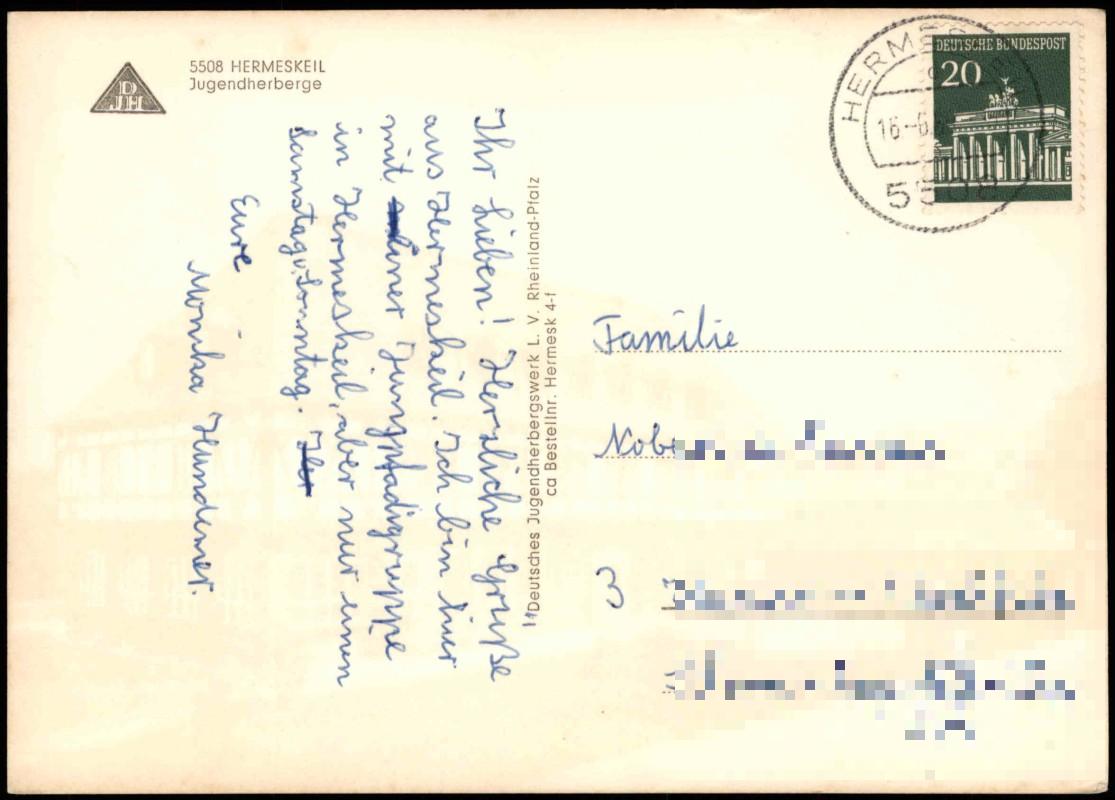 DJH
5508 HERMESKEIL
Jugendherberge
Ihr Lieben! Herzliche Grüße
aus Hermeskeil. Ich bin hier
mit einer Jungpfadigruppe
in Hermeskeil, aber nur einen
Samstag u. Sonntag.
Eure
Monika Hundemer.
Deutsches Jugendherbergswerk L. V. Rheinland-Pfalz
ca Bestellnr. Hermesk 4-f
HERMES
16.-6.
5508
DEUTSCHE BUNDESPOST
20
Familie